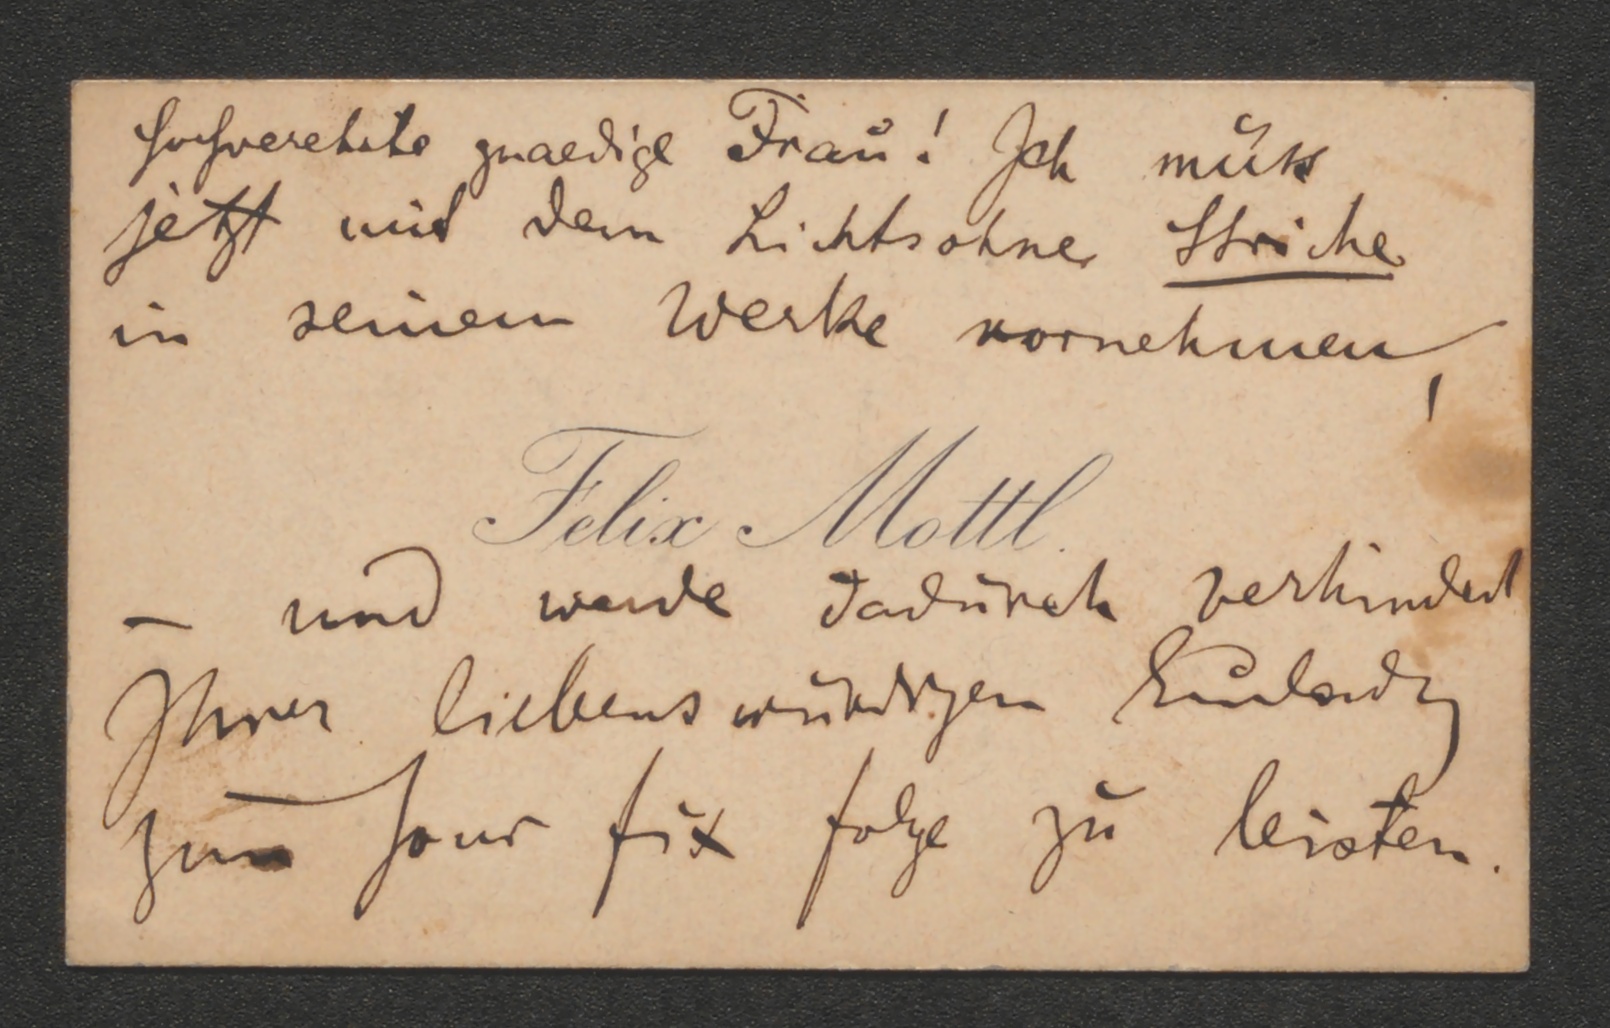 Hochverehrte gnaedige Frau! Ich muss
jetzt mit dem Lichtsohne Striche
in seinem Werke vornehmen
!
Felix Mottl.
– und werde dadurch verhindert
Ihrer liebenswürdigen Einladg
zum Jour fix folge zu leisten.